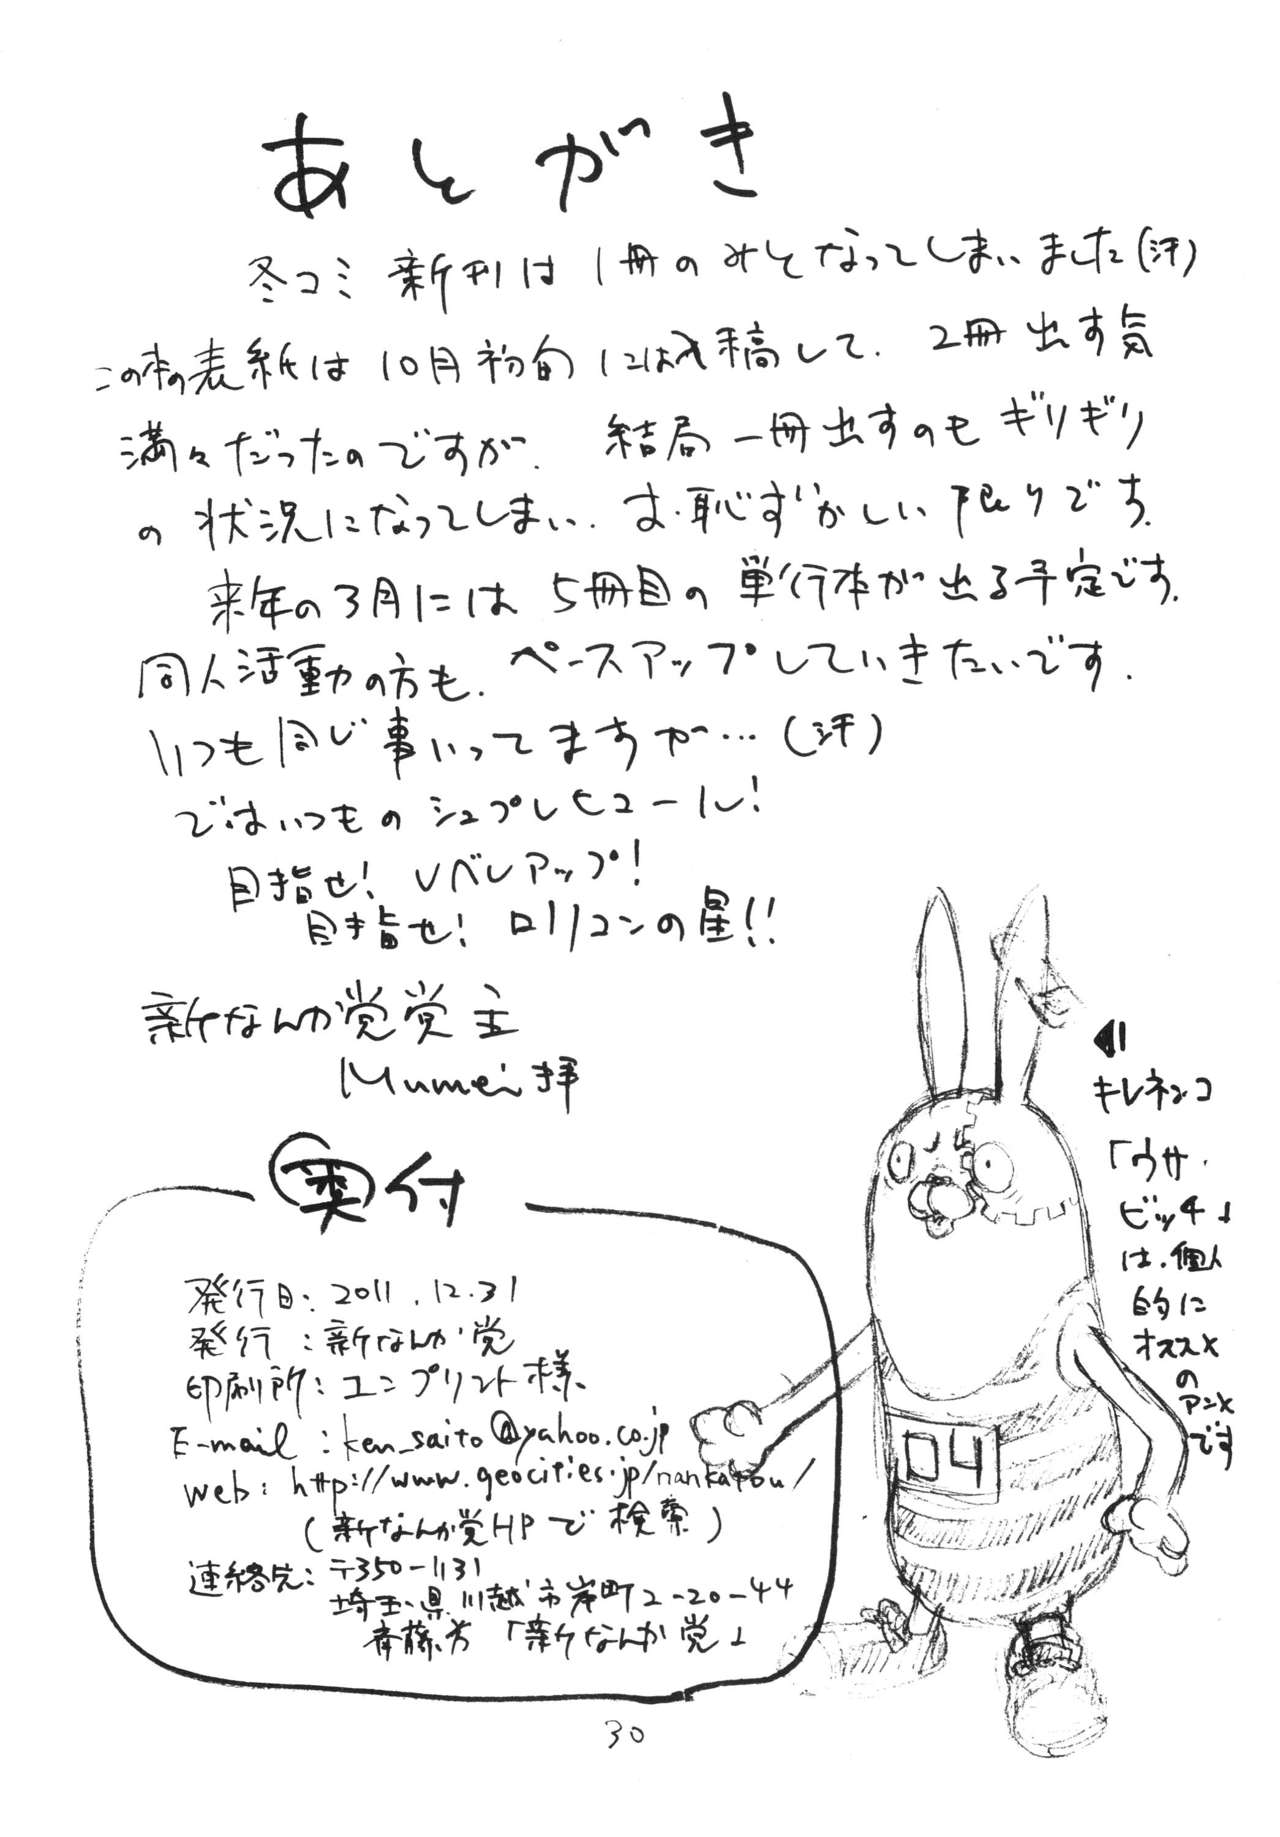 あとがき
冬コミ新刊は1冊のみとなってしまいました(汗)
この本の表紙は10月初旬には入稿して、2冊出す気
満々だったのですが、結局一冊出すのもギリギリ
の状況になってしまい、お恥ずかしい限りです。
来年の3月には5冊目の単行本が出る予定です。
同人活動の方も、ペースアップしていきたいです。
いつも同じ事いってますが…(汗)
ではいつものシュプレヒコール!
目指せ!レベルアップ!
目指せ!ロリコンの星!!
新なんか党党主
Mumei拝
キレネンコ
「ウサ
ビッチ」
は、個人
的に
オススメ
の
アニメ
です
奥付
発行日:2011.12.31
発行:新なんか党
印刷所:ユニプリント様
E-mail:ken_saito@yahoo.co.jp
web:http://www.geocities.jp/nankatou/
(新なんか党HPで検索)
連絡先:〒350-1131
埼玉県川越市岸町2-20-44
斉藤方「新なんか党」
04
30